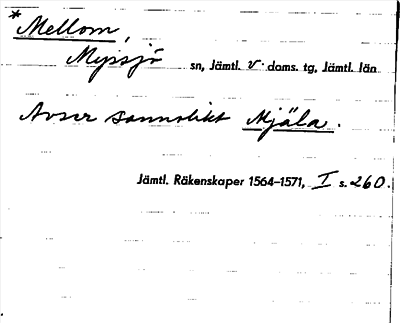 *Mellom,
Myssjö sn, Jämtl. v. doms. tg, Jämtl. län
Avser sannolikt Mjäla.
Jämtl. Räkenskaper 1564–1571, I s. 260.